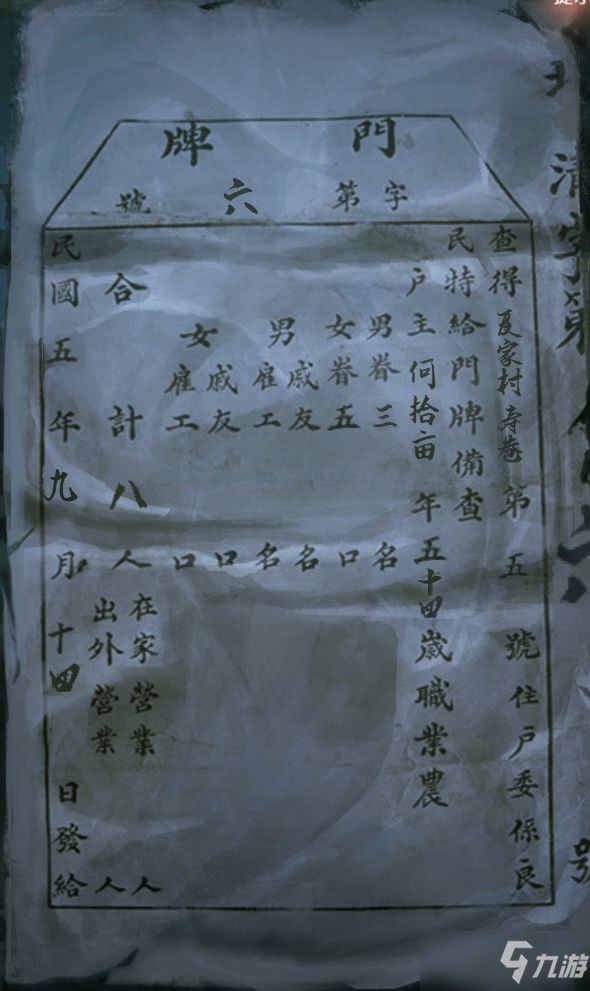 門牌
字第六號
查得夏家村寿巷第五號住戶委係良
民特給門牌備查
户主何拾亩年五十四歲職業農
男眷三名
女眷五口
男
戚友名
雇工名
女
戚友口
雇工口
合計八人
在家營業人
出外營業人
民國五年九月十四日發給
九游